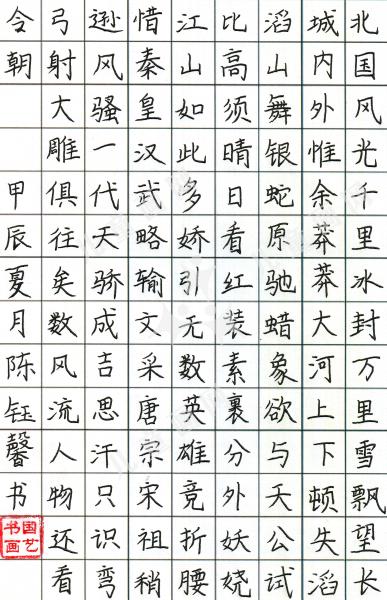 北国风光千里冰封万里雪飘望长
城内外惟余莽莽大河上下顿失滔
滔山舞银蛇原驰蜡象欲与天公试
比高须晴日看红装素裹分外妖娆
江山如此多娇引无数英雄竞折腰
惜秦皇汉武略输文采唐宗宋祖稍
逊风骚一代天骄成吉思汗只识弯
弓射大雕俱往矣数风流人物还看
今朝 甲辰夏月陈钰馨书
国艺
书画